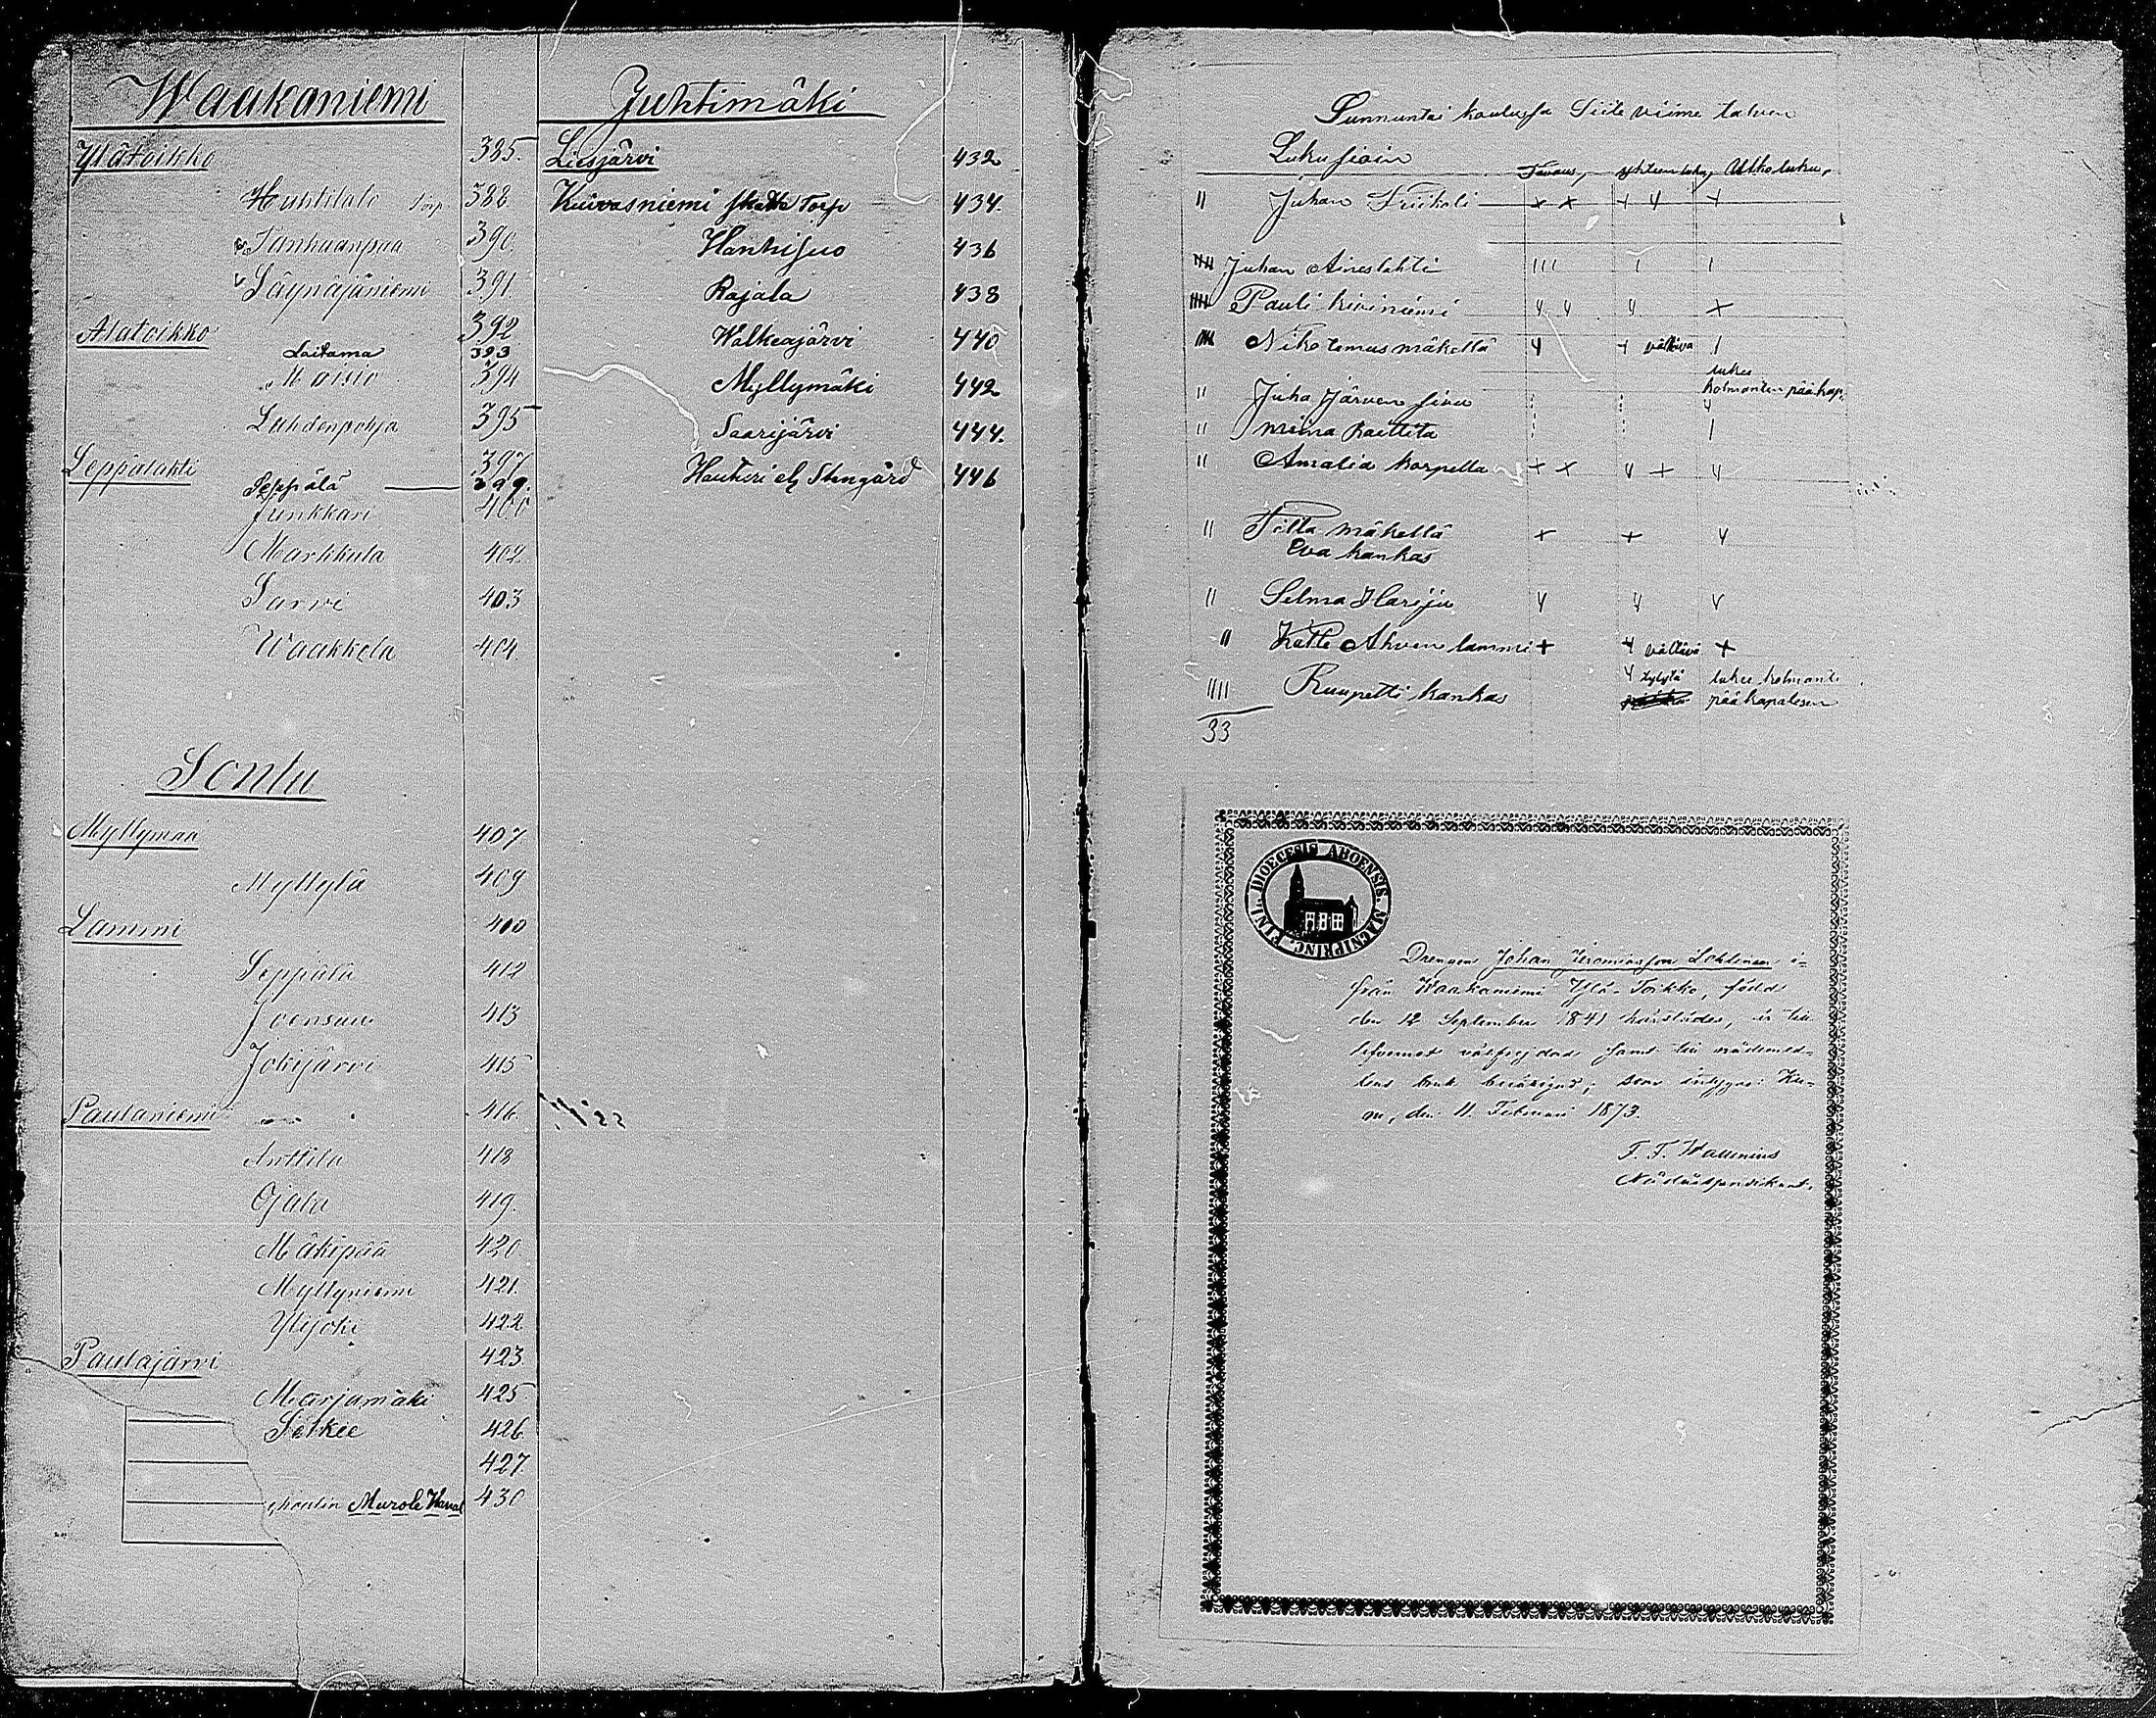 Waakaniemi
Ylätoikko 385.
Huhtilale torp 388
Tanhuanpää 390.
Säynäjäniemi 391.
Alatoikko 392
Laitama 393
Moisio 394
Lahdenpohja 395
Leppälahti 397
Seppälä 399.
Junkkari 400
Markkula 402.
Sarvi 403
Waakkola 404.
Sontu
Myllymaa 407
Myllylä 409
Lammi 410
Seppälä 412
Joensuu 413
Jokijärvi 415
Paulaniemi 416.
Anttila 418
Ojala 419.
Mäkipää 420
Myllyniemi 421.
Ylijoki 422
Paulajärvi 423.
Marjamäki 425
Selkee 426
427.
Murole Kanal 430
Juhtimäki
Liesjärvi 432
Kuivasniemi skatte Torp 434.
Hankisuo 436
Rajala 438
Walkeajärvi 440
Myllymäki 442
Saarijärvi 444.
Hauturi elr Stengård 446
Sunnuntai koulussa Siite viime talven
Lukusioin Tavaus, yhteenluku, Ulkoluku,
Juhan Friikoli
Juhan Aineslahti
Pauli kiviniemi
Nikotemus mäkellä välttävä
lukee
kolmanten pääkap.
Juha Järven sivu
miina Raittita
Amalia korpella
Tilta mäkellä
Eva kankas
Selma Harjju
Kalle Ahvenlammi välttävä
tytytä lukee kolmante
Ruupetti kankas pääkapalesen
33
DIOECESIS ABOENSIS. MAGNI PRINC. FINL.
Drengen Johan Jeremiasson Lehtinen i-
från Waakaniemi Ylä-Toikko, född
den 12 September 1841 härstädes, är till
lefvernet välfrejdad samt till nådemed-
lens bruk berättigad; som intygas: Ku-
ru, den 11. Februari 1873.
F. F. Wallenius
Nådeårspredikant.